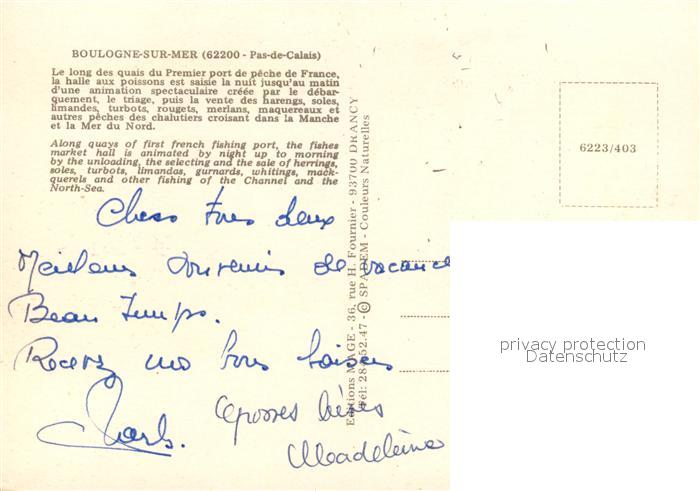 BOULOGNE-SUR-MER (62200 - Pas-de-Calais)
Le long des quais du Premier port de pêche de France,
la halle aux poissons est saisie la nuit jusqu'au matin
d'une animation spectaculaire créée par le débar-
quement, le triage, puis la vente des harengs, soles,
limandes, turbots, rougets, merlans, maquereaux et
autres pêches des chalutiers croisant dans la Manche
et la Mer du Nord.
Along quays of first french fishing port, the fishes
market hall is animated by night up to morning
by the unloading, the selecting and the sale of herrings,
soles, turbots, limandas, gurnards, whitings, mack-
querels and other fishing of the Channel and the
North-Sea.
Chers tous deux
Meilleurs souvenirs de vacance
Beau Temps.
Recevez nos bons baisers
Madeleine
Editions MAGE - 36, rue H. Fournier - 93700 DRANCY
Tél: 28 52.47 - © SPADEM - Couleurs Naturelles
6223/403
privacy protection
Datenschutz